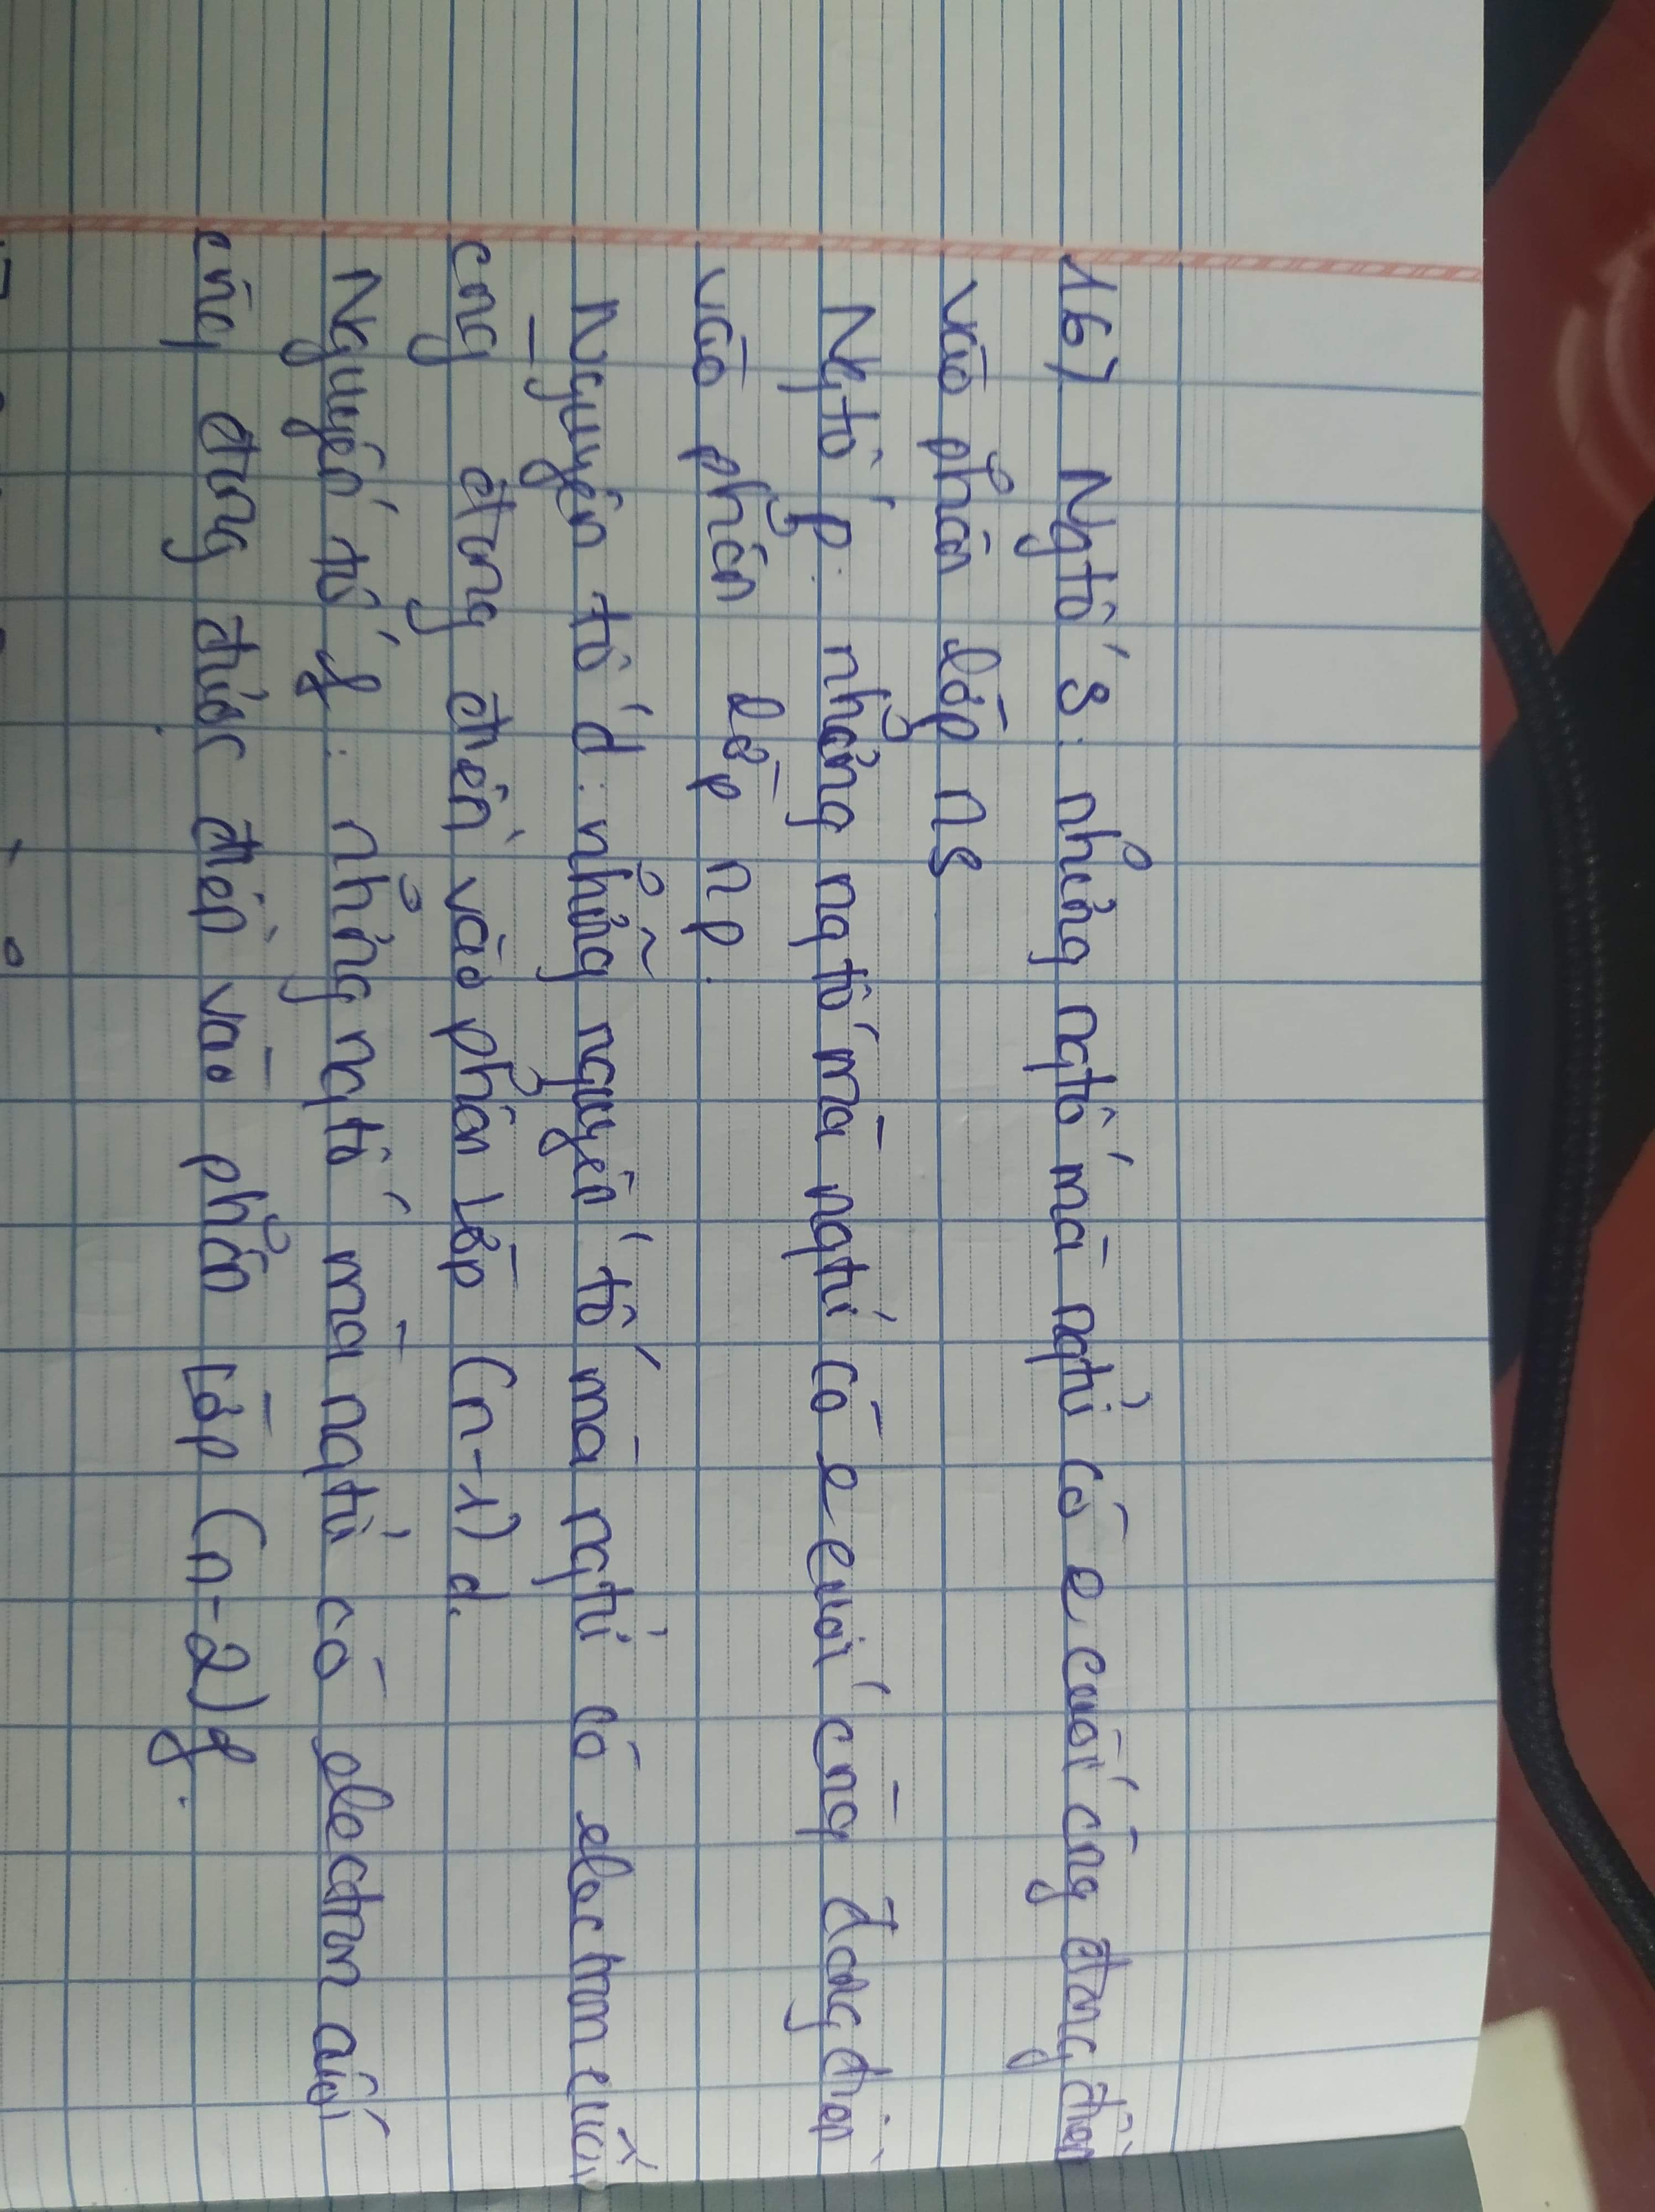 16) Ngtố s: những ngtố mà ngtử có e cuối cùng đang điền
vào phân lớp ns
Ngtố p: những ngtố mà ngtử có e cuối cùng đang điền
vào phân lớp np.
Nguyên tố d: những nguyên tố mà ngtử có electron cuối
cùng đang điền vào phân lớp (n-1)d.
Nguyên tố f: những ngtố mà ngtử có electron cuối
cùng đang được điền vào phân lớp (n-2)f.